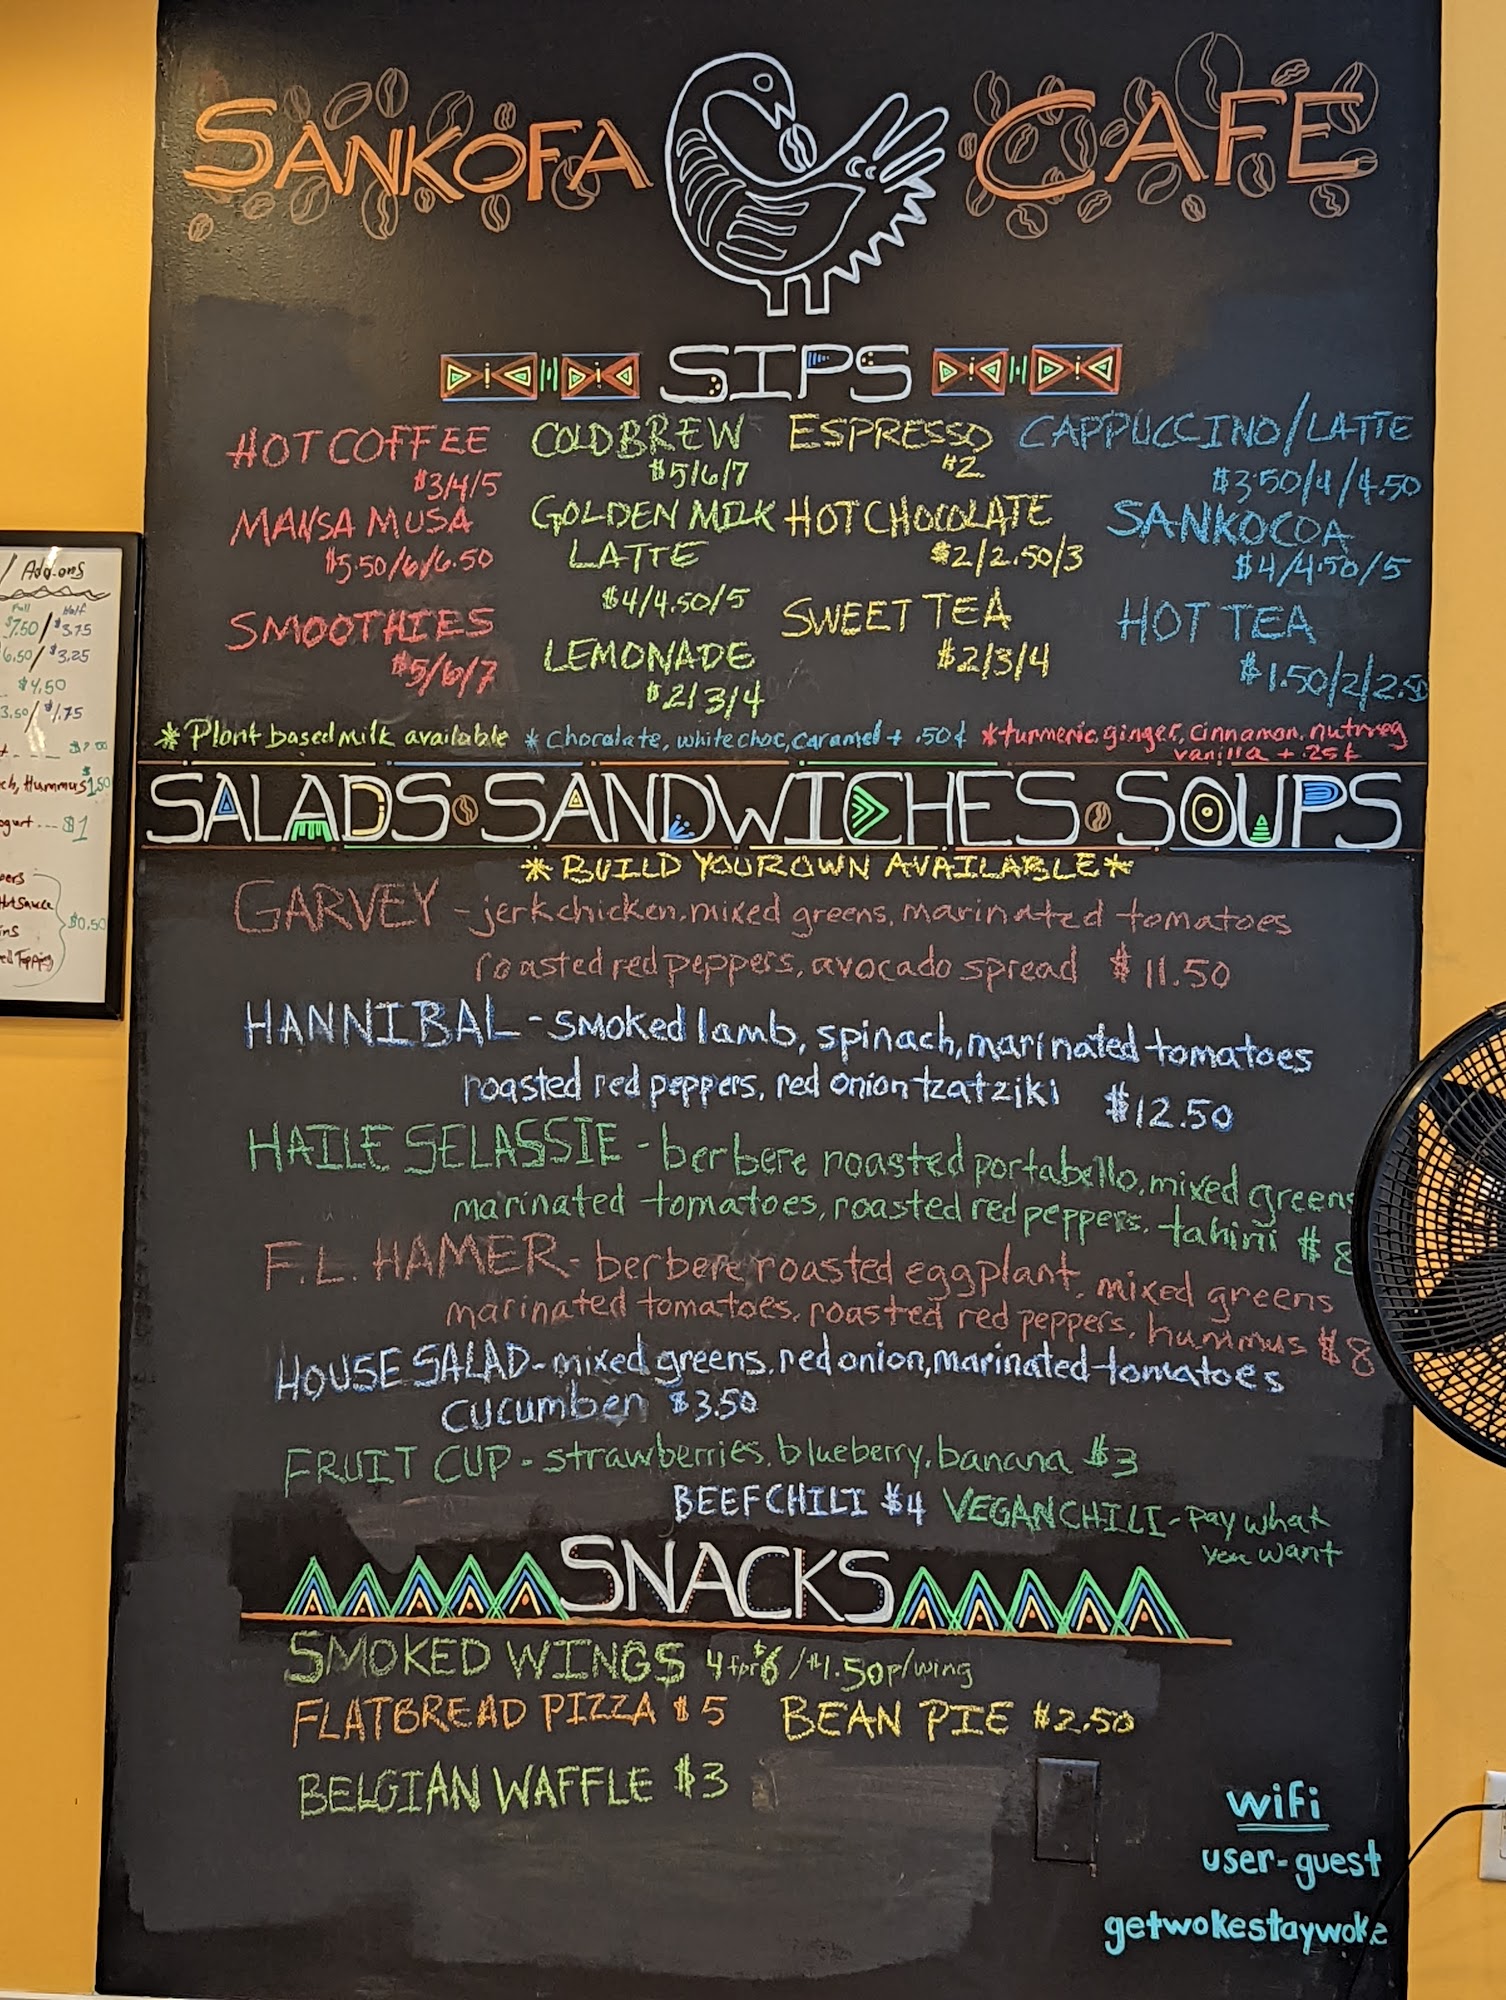 SANKOFA CAFE
SIPS
HOT COFFEE
$3/4/5
COLD BREW
$5/6/7
ESPRESSO
$2.
CAPPUCCINO/LATTE
$3.50/4/4.50
MANSA MUSA
$5.50/6/6.50
GOLDEN MILK
LATTE
$4/4.50/5
HOT CHOCOLATE
$2/2.50/3
SANKOCOA
$4/4.50/5
SMOOTHIES
$5/6/7
LEMONADE
$2/3/4
SWEET TEA
$2/3/4
HOT TEA
$1.50/2/2.50
*Plant based milk available *chocolate, white choc, caramel + .50¢ *turmeric, ginger, cinnamon, nutmeg
vanilla + .25¢
SALADS • SANDWICHES • SOUPS
*BUILD YOUR OWN AVAILABLE*
GARVEY - jerk chicken, mixed greens, marinated tomatoes
roasted red peppers, avocado spread $11.50
HANNIBAL - smoked lamb, spinach, marinated tomatoes
roasted red peppers, red onion tzatziki $12.50
HAILE SELASSIE - berbere roasted portabello, mixed greens
marinated tomatoes, roasted red peppers, tahini $8
F.L. HAMER - berbere roasted eggplant, mixed greens
marinated tomatoes, roasted red peppers, hummus $8
HOUSE SALAD - mixed greens, red onion, marinated tomatoes
cucumber $3.50
FRUIT CUP - strawberries, blueberry, banana $3
BEEF CHILI $4 VEGAN CHILI - Pay what
you want
SNACKS
SMOKED WINGS 4 for $6 / $1.50 p/wing
FLATBREAD PIZZA $5 BEAN PIE $2.50
BELGIAN WAFFLE $3
wifi
user-guest
getwokestaywoke
/ Add-ons
Full Half
$7.50 / $3.75
6.50 / $3.25
$4.50
3.50 / $1.75
Hummus $1.50
$1
Hot Sauce
$0.50